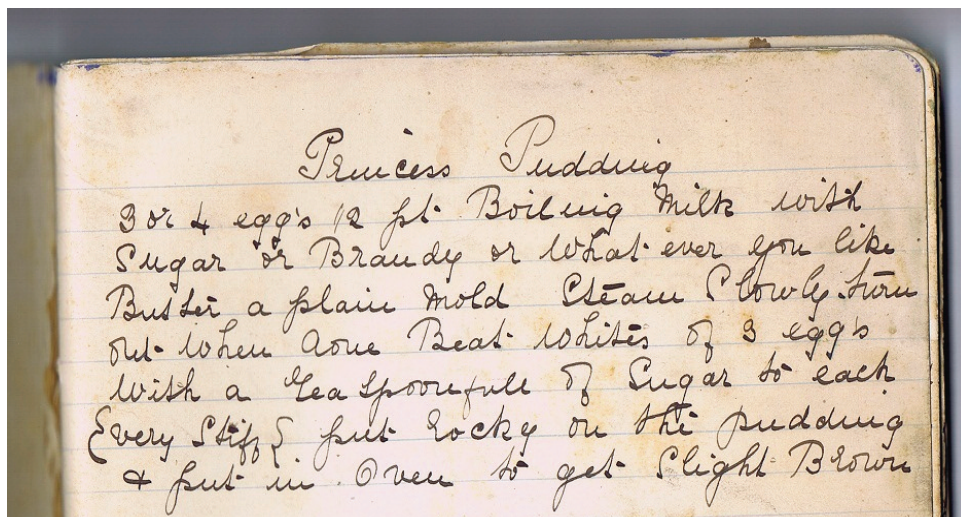 Princess Pudding
3 or 4 egg's 1/2 pt Boiling Milk with
Sugar or Brandy or What ever you like
Butter a plain mold Steam Slowly turn
out When done Beat Whites of 3 egg's
With a Teaspoonfull of Sugar to each
{very Stiff} put rocky on the pudding
& put in Oven to get Slight Brown